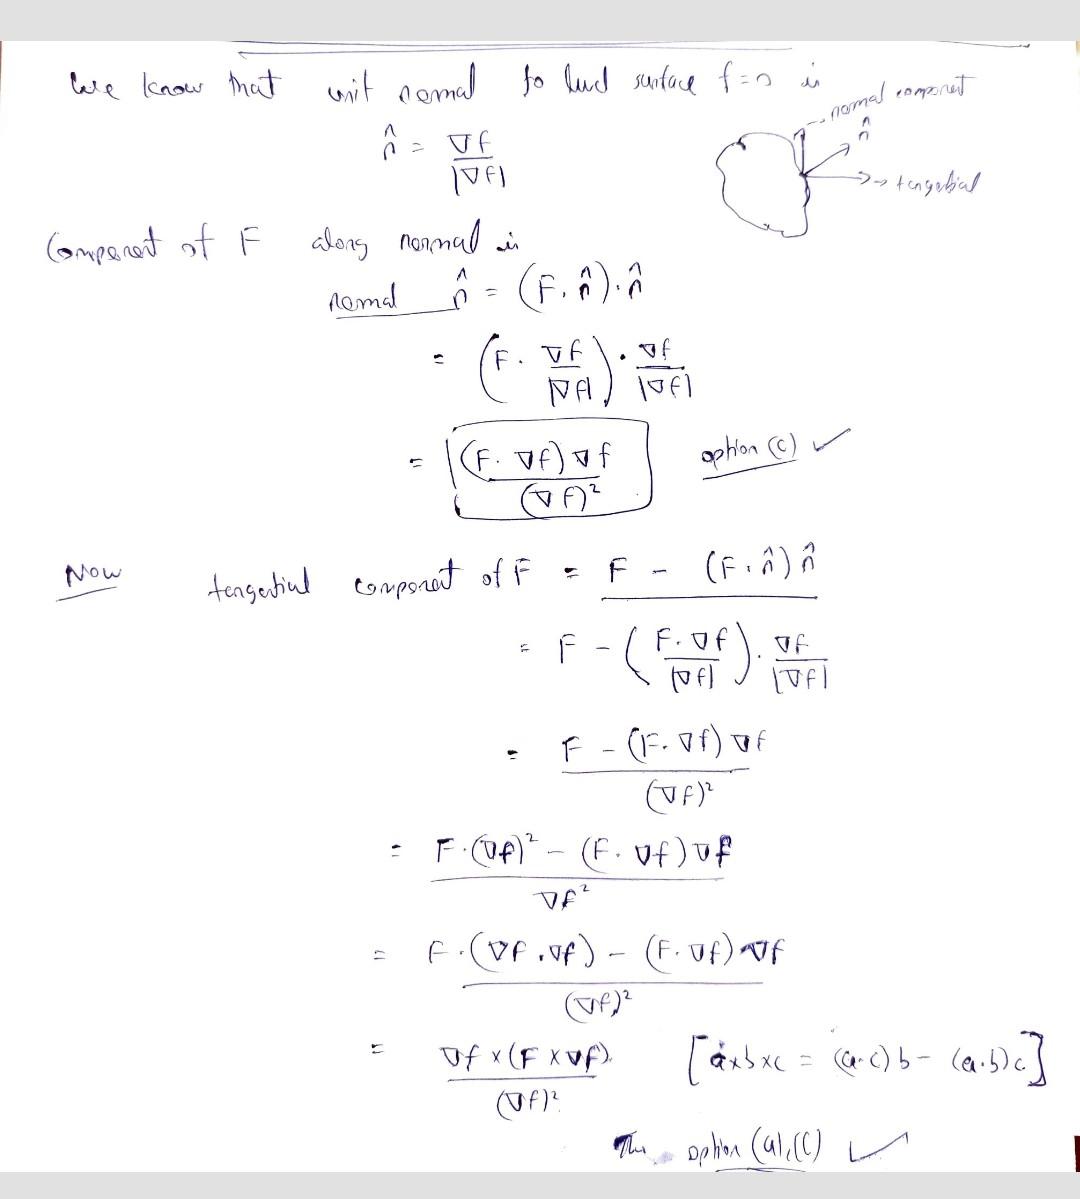 We know that unit normal to level surface f=0 is
n̂ = ∇f / |∇f|
normal component
n̂
tangential
Component of F along normal is
normal n̂ = (F. n̂).n̂
= (F. ∇f / |∇f|) . ∇f / |∇f|
= (F. ∇f) ∇f / (∇f)² option (c) ✓
Now tangential component of F = F - (F.n̂) n̂
= F - (F.∇f / |∇f|) . ∇f / |∇f|
= F - (F.∇f) ∇f / (∇f)²
= F.(∇f)² - (F. ∇f) ∇f / ∇f²
= F.(∇f .∇f) - (F. ∇f) ∇f / (∇f)²
= ∇f x (F x ∇f). / (∇f)² [axbxc = (a.c) b - (a.b)c]
option (a),(c) ✓